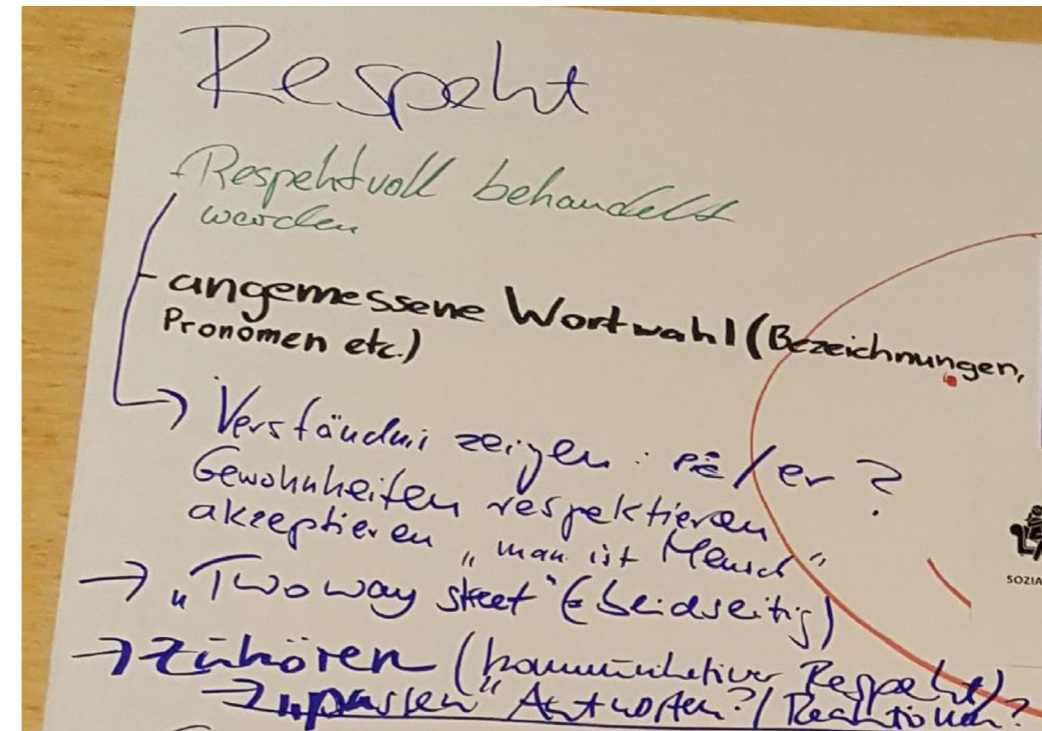 Respekt
- Respektvoll behandelt
werden
- angemessene Wortwahl (Bezeichnungen,
Pronomen etc.)
→ Verständni zeigen : sie/er ?
Gewohnheiten respektieren
akzeptieren „man ist Mensch“
→ „Two way street“ (beidseitig)
→ zuhören (kommunikativer Respekt)
→ „passen“ Antworten?/Reaktionen?
SOZIA